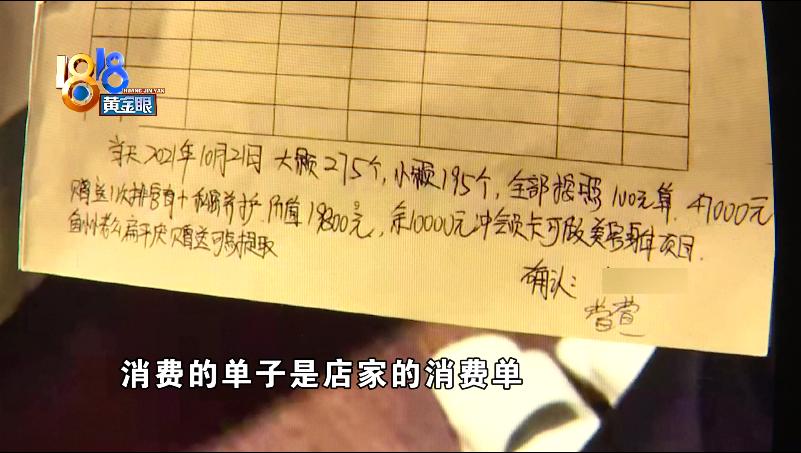 1818
HUANG JIN YAN
黄金眼
当天2021年10月21日 大颗275个，小颗195个，全部按照100元算，47000元
赠送1次排宫寒+私密养护，价值19800元，余10000元冲会员卡可做美容身体项目.
赠送可点提取
确认：
消费的单子是店家的消费单